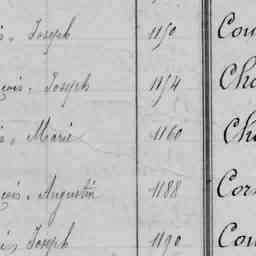 is, Joseph 1150 Cou
çois, Joseph 1154 Cha
is, Marie 1160 Cha
çois, Augustin 1188 Cor
is, Joseph 1190 Cou